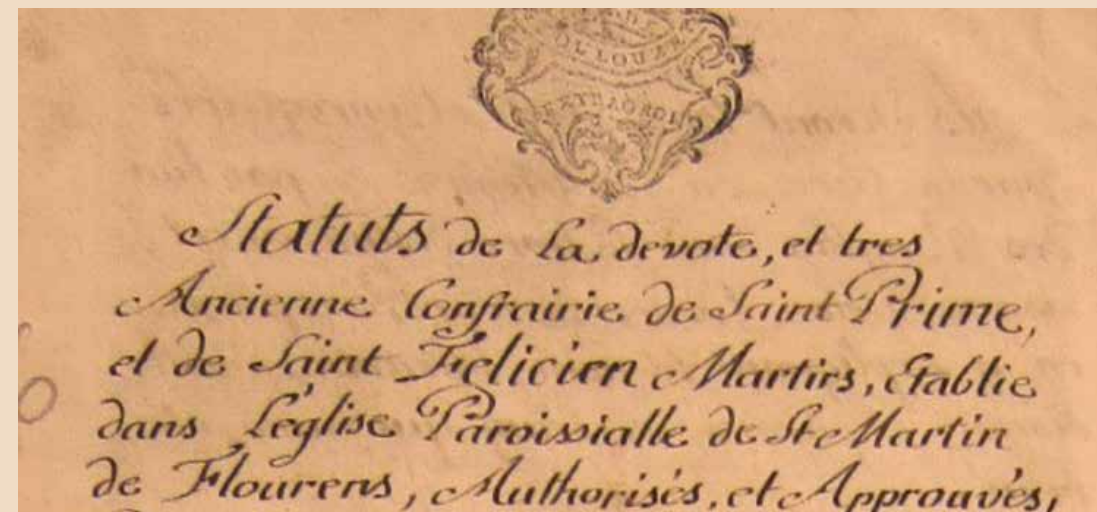 TOLLOUSE
EXTRAORD
Statuts de La devote, et tres
Ancienne Confrairie de Saint Prime,
et de Saint Felicien Martirs, Etablie
dans L'église Paroissialle de St Martin
de Flourens, Authorisés, et Approuvés,